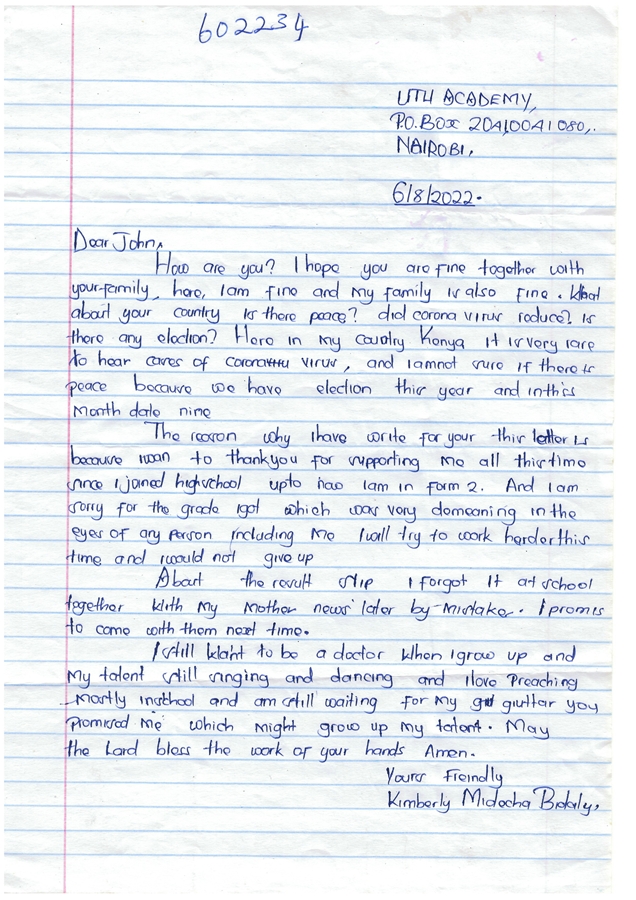 602234
UTH ACADEMY,
P.O.BOX 20410041080,.
NAIROBI,
6/8/2022.
Dear John,
How are you? I hope you are fine together with
your family, here, I am fine and my family is also fine. What
about your country is there peace? did corona virus reduce? Is
there any election? Here in my country Kenya it is very rare
to hear cases of corona virus, and I amnot sure if there is
peace because we have election this year and inthis
month date nine
The reason why Ihave write for your this letter is
because I wan to thankyou for supporting me all this time
since I joined highschool upto now I am in form 2. And I am
sorry for the grade I got which was very demeaning in the
eyes of any person including me I will try to work harder this
time and I would not give up
About the result slip I forgot it at school
together with my mother news later by mistake. I promis
to come with them next time.
I still want to be a doctor when I grow up and
my talent still singing and dancing and I love preaching
mostly inschool and am still waiting for my guittar you
promised me which might grow up my talent. May
the Lord bless the work of your hands Amen.
Yours Freindly
Kimberly Midecha Bidaly,